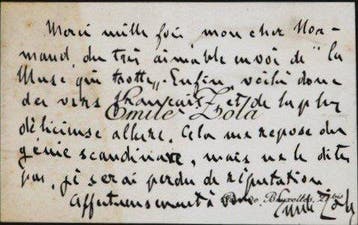 Merci mille fois, mon cher Nor-
mand, du très aimable envoi de "la
Muse qui trotte„. Enfin voilà donc
des vers français, et de la plus
Emile Zola
délicieuse allure. Cela me repose du
génie scandinave, mais ne le dites
pas, je serai perdu de réputation
Affectueusement à vous
Rue de Bruxelles, 21 bis
Emile Zola